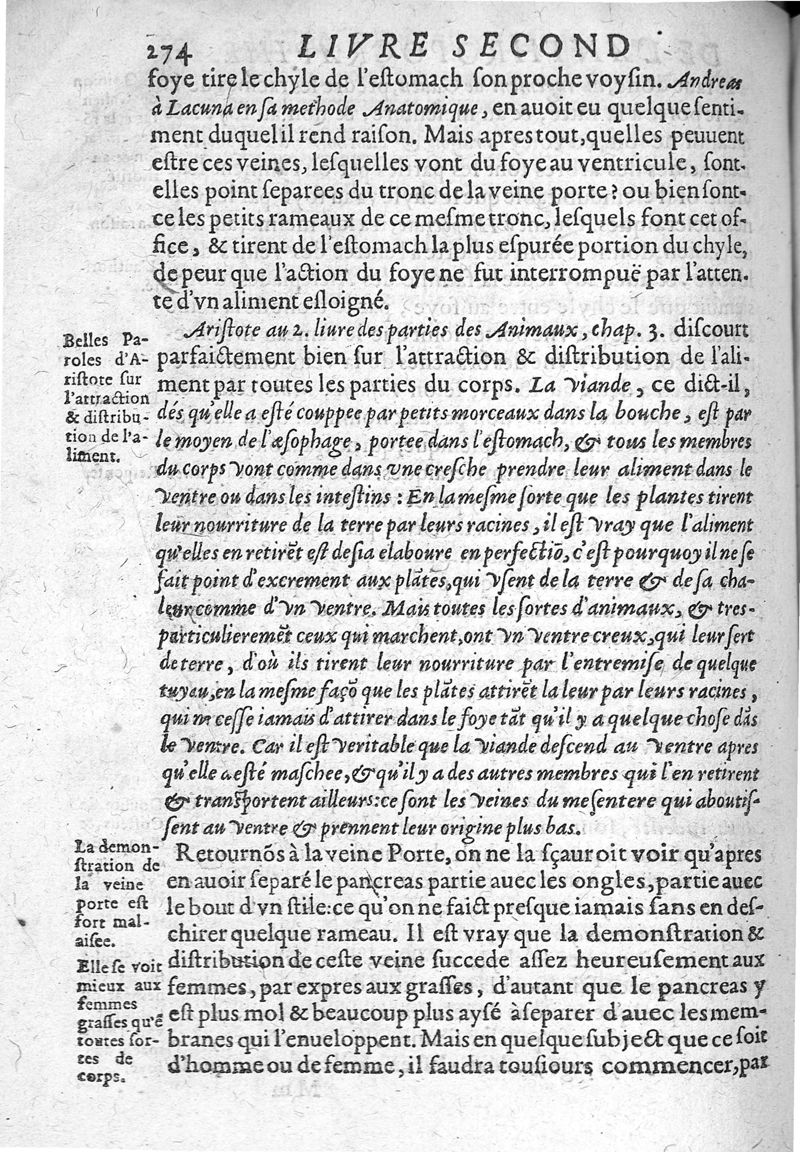 274 LIVRE SECOND
foye tire le chyle de l'estomach son proche voysin. Andreas
à Lacuna en sa methode Anatomique, en auoit eu quelque senti-
ment duquel il rend raison. Mais apres tout, quelles peuuent
estre ces veines, lesquelles vont du foye au ventricule, sont-
elles point separees du tronc de la veine porte? ou bien sont-
ce les petits rameaux de ce mesme tronc, lesquels font cet of-
fice, & tirent de l'estomach la plus espurée portion du chyle,
de peur que l'action du foye ne fut interrompuë par l'atten-
te d'vn aliment esloigné.
Aristote au 2. liure des parties des Animaux, chap. 3. discourt
parfaictement bien sur l'attraction & distribution de l'ali-
ment par toutes les parties du corps. La viande, ce dict-il,
dés qu'elle a esté couppee par petits morceaux dans la bouche, est par
le moyen de l'æsophage, portee dans l'estomach, & tous les membres
du corps vont comme dans vne cresche prendre leur aliment dans le
ventre ou dans les intestins : En la mesme sorte que les plantes tirent
leur nourriture de la terre par leurs racines, il est vray que l'aliment
qu'elles en retirēt est desia elaboure en perfectiō, c'est pourquoy il ne se
fait point d'excrement aux plātes, qui vsent de la terre & de sa cha-
leur comme d'vn ventre. Mais toutes les sortes d'animaux, & tres-
particulieremēt ceux qui marchent, ont vn ventre creux, qui leur sert
de terre, d'où ils tirent leur nourriture par l'entremise de quelque
tuyau, en la mesme façō que les plātes attirēt la leur par leurs racines,
qui ne cesse iamais d'attirer dans le foye tāt qu'il y a quelque chose dās
le ventre. Car il est veritable que la viande descend au ventre apres
qu'elle a esté maschee, & qu'il y a des autres membres qui l'en retirent
& transportent ailleurs: ce sont les veines du mesentere qui aboutis-
sent au ventre & prennent leur origine plus bas.
Retournōs à la veine Porte, on ne la sçauroit voir qu'apres
en auoir separé le pancreas partie auec les ongles, partie auec
le bout d'vn stile: ce qu'on ne faict presque iamais sans en des-
chirer quelque rameau. Il est vray que la demonstration &
distribution de ceste veine succede assez heureusement aux
femmes, par expres aux grasses, d'autant que le pancreas y
est plus mol & beaucoup plus aysé à separer d'auec les mem-
branes qui l'enueloppent. Mais en quelque subject que ce soit
d'homme ou de femme, il faudra tousiours commencer, par
Belles Pa-
roles d'A-
ristote sur
l'attraction
& distribu-
tion de l'a-
liment.
La demon-
stration de
la veine
porte est
fort mal-
aisee.
Elle se voit
mieux aux
femmes
grasses qu'ē
toutes sor-
tes de
corps.